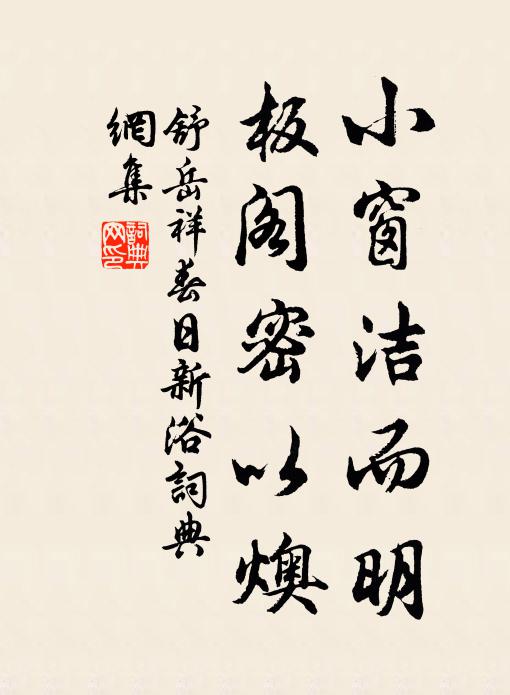 小窗洁而明
板阁密以燠
舒岳祥春日新浴詞典
網集
詞典
网印